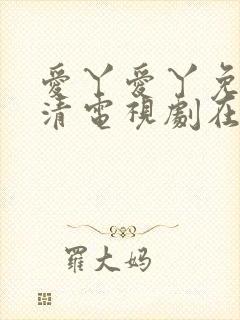 愛丫愛丫免
清電視劇在
羅大妈